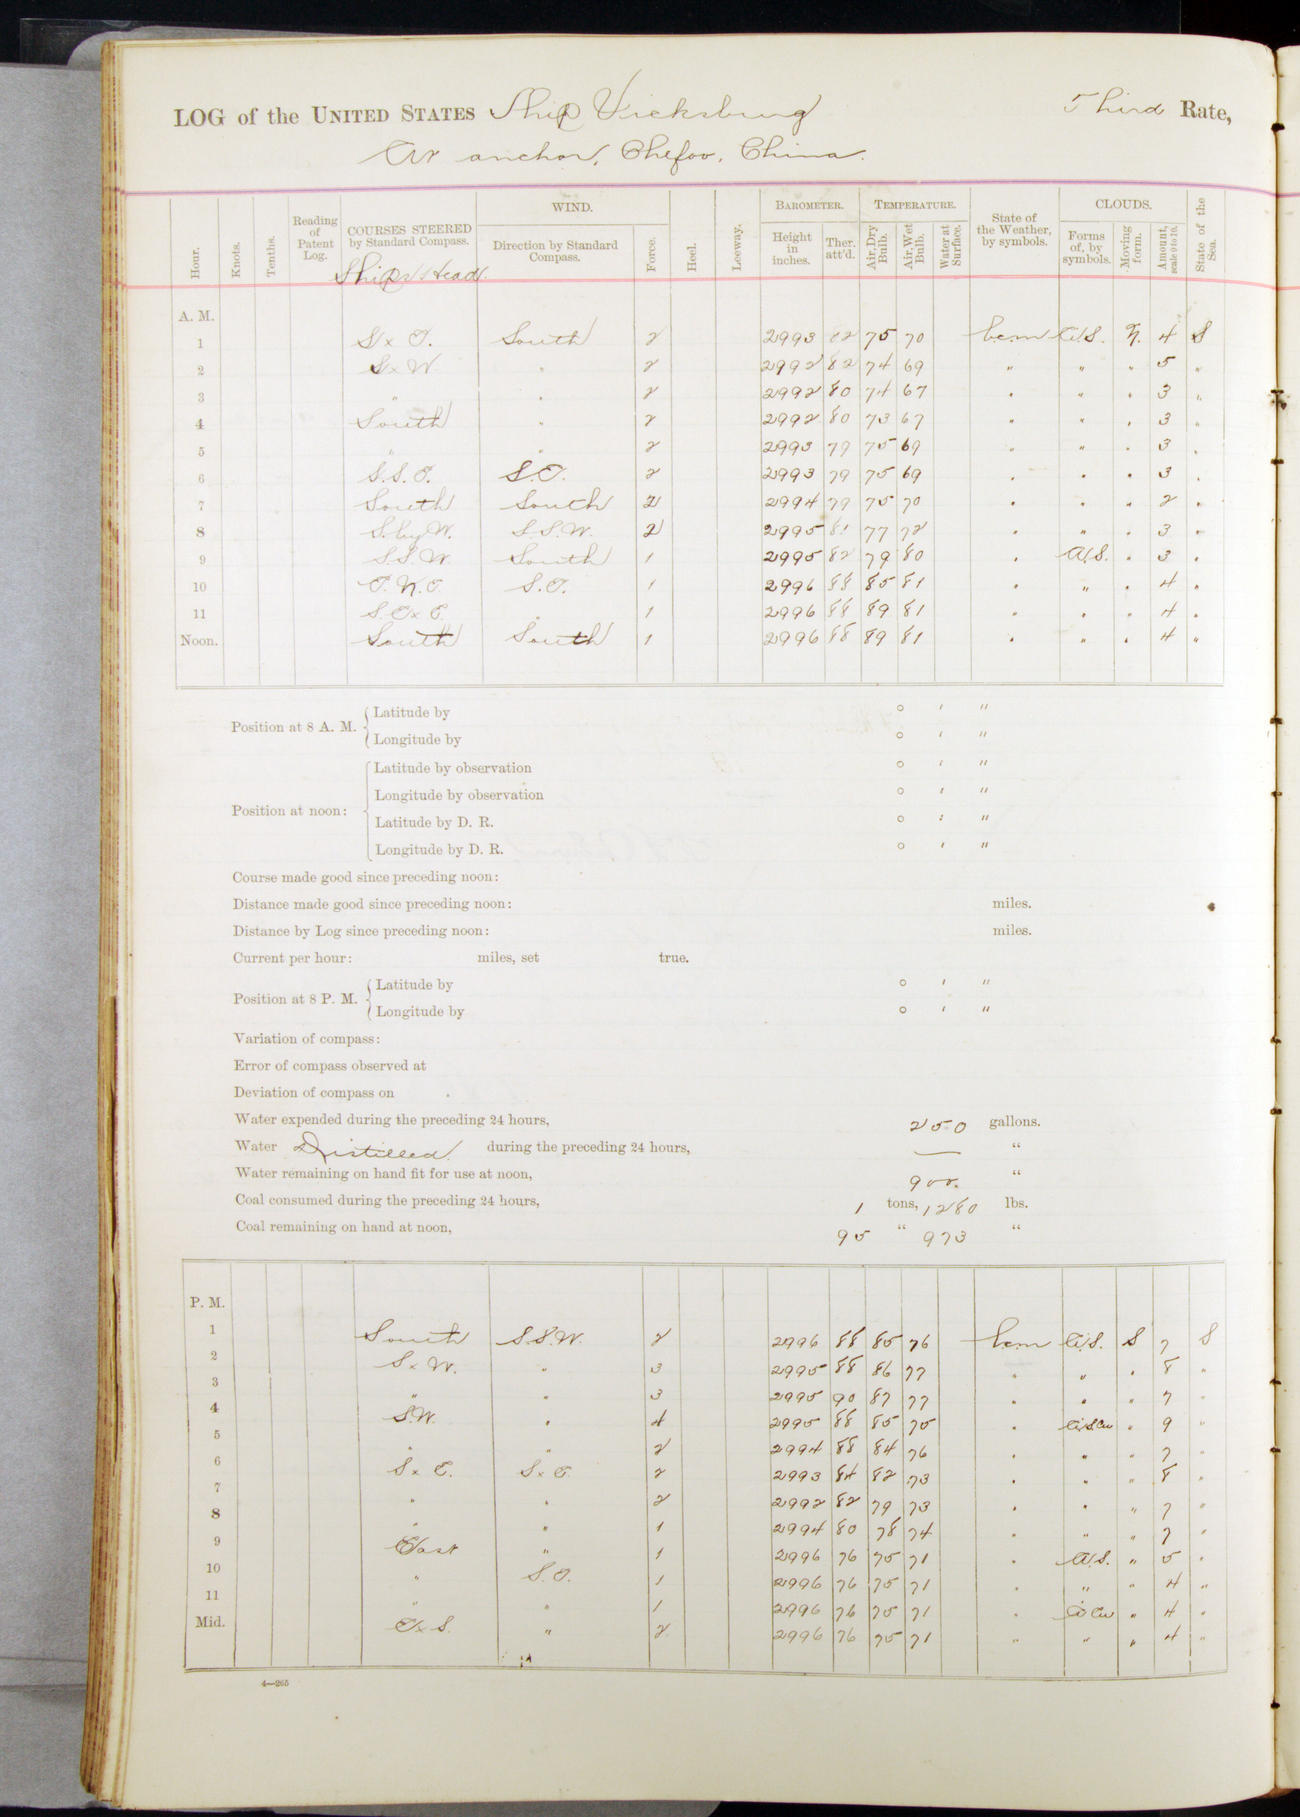 LOG of the UNITED STATES Ship Vicksburg Third Rate,
At anchor, Chefoo, China.
Hour. Knots. Tenths. Reading of Patent Log. COURSES STEERED by Standard Compass. WIND. Direction by Standard Compass. Force. Heel. Leeway. BAROMETER. Height in inches. Ther. att'd. TEMPERATURE. Air, Dry Bulb. Air, Wet Bulb. Water at Surface. State of the Weather, by symbols. CLOUDS. Forms of, by symbols. Moving form. Amount, scale 0 to 10. State of the Sea.
Ship's Head.
A. M.
1 S x E. South 2 2993 82 75 70 bcm Ci.S. N. 4 S
2 S x W. " 2 2992 82 74 69 " " " 5 "
3 " " 2 2992 80 74 67 " " " 3 "
4 South " 2 2992 80 73 67 " " " 3 "
5 " " 2 2993 79 75 69 " " " 3 "
6 S.S.E. S.E. 2 2993 79 75 69 " " " 3 "
7 South South 2 2994 79 75 70 " " " 2 "
8 S. by W. S.S.W. 2 2995 81 77 72 " " " 3 "
9 S.S.W. South 1 2995 82 79 80 " A.S. " 3 "
10 E.N.E. S.E. 1 2996 88 85 81 " " " 4 "
11 S.E x E. " 1 2996 88 89 81 " " " 4 "
Noon. South South 1 2996 88 89 81 " " " 4 "
Position at 8 A. M. Latitude by ° ' "
Longitude by ° ' "
Position at noon: Latitude by observation ° ' "
Longitude by observation ° ' "
Latitude by D. R. ° ' "
Longitude by D. R. ° ' "
Course made good since preceding noon:
Distance made good since preceding noon: miles.
Distance by Log since preceding noon: miles.
Current per hour: miles, set true.
Position at 8 P. M. Latitude by ° ' "
Longitude by ° ' "
Variation of compass:
Error of compass observed at
Deviation of compass on
Water expended during the preceding 24 hours, 250 gallons.
Water Distilled during the preceding 24 hours, — "
Water remaining on hand fit for use at noon, 900. "
Coal consumed during the preceding 24 hours, 1 tons, 1280 lbs.
Coal remaining on hand at noon, 95 " 973 "
P. M.
1 South S.S.W. 2 2996 88 85 76 bcm Ci.S. S 7 S
2 S x W. " 3 2995 88 86 77 " " " 8 "
3 " " 3 2995 90 87 77 " " " 7 "
4 S.W. " 4 2995 88 85 75 " Ci.S.Cu " 9 "
5 " " 2 2994 88 84 76 " " " 7 "
6 S x E. S x E. 2 2993 84 82 73 " " " 8 "
7 " " 2 2992 82 79 73 " " " 7 "
8 " " 1 2994 80 78 74 " " " 7 "
9 East " 1 2996 76 75 71 " A.S. " 5 "
10 " S.E. 1 2996 76 75 71 " " " 4 "
11 " " 1 2996 76 75 71 " Ci Cu " 4 "
Mid. E x S. " 2 2996 76 75 71 " " " 4 "
4—265